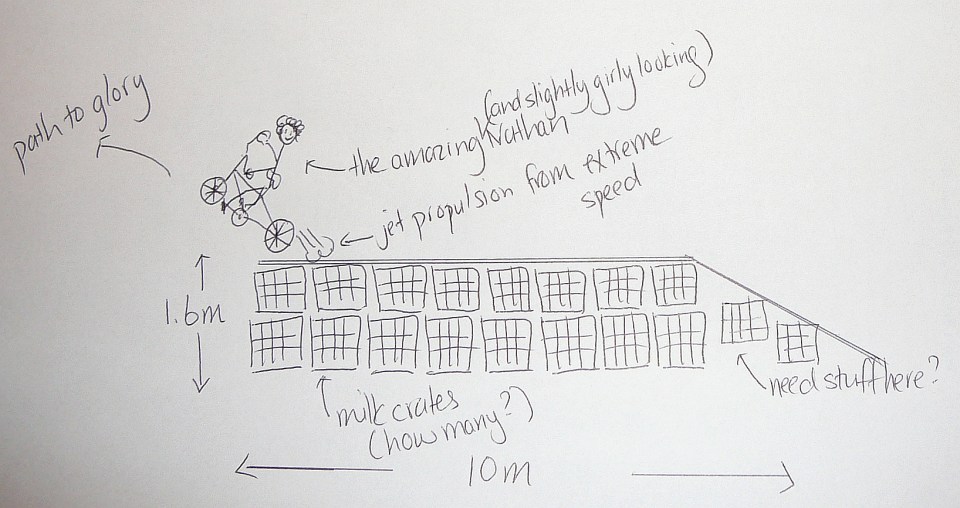 path to glory
(and slightly girly looking)
the amazing Nathan
jet propulsion from extreme
speed
1.6m
need stuff here?
milk crates
(how many?)
10m